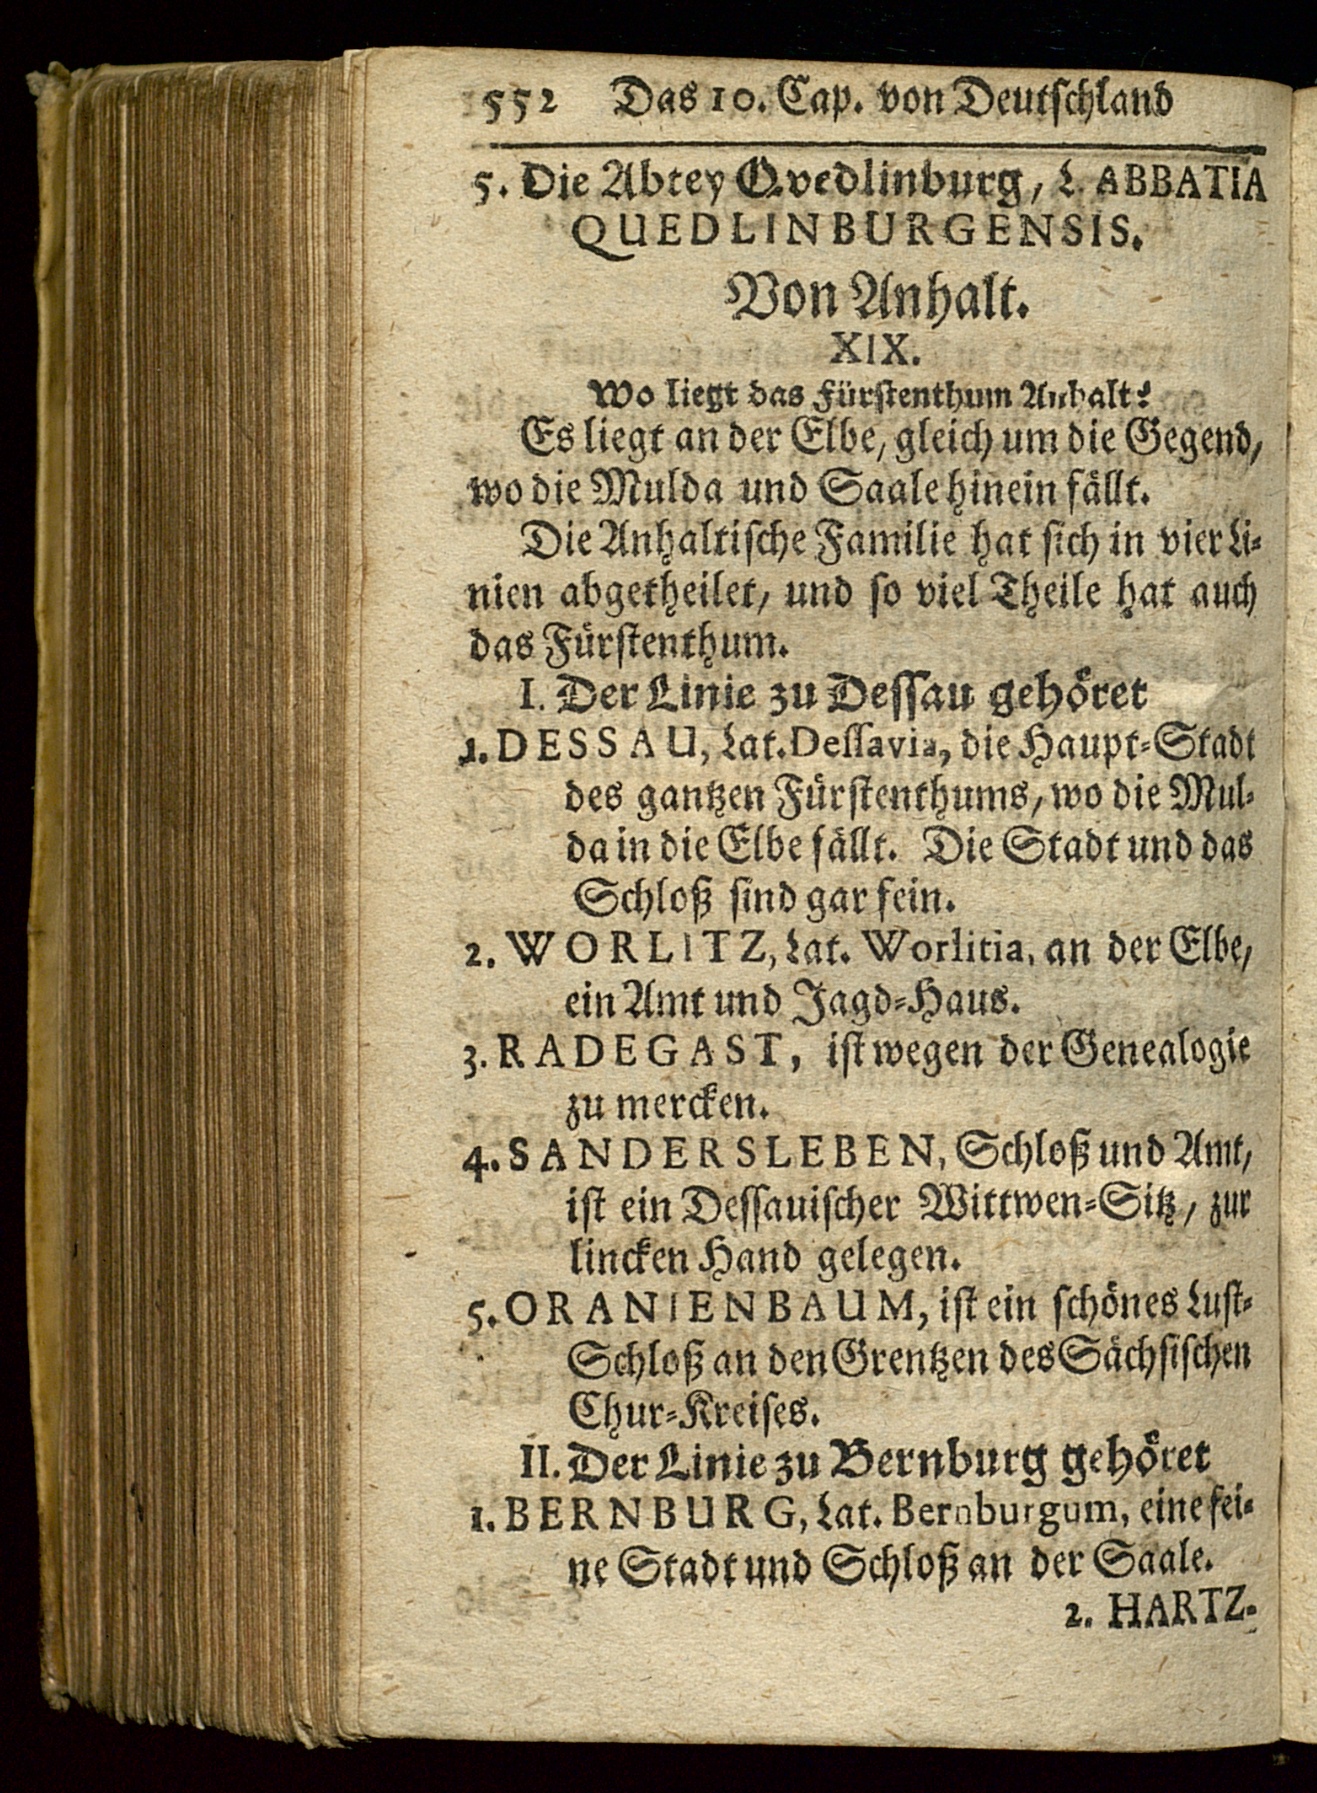 552 Das 10. Cap. von Deutschland
5. Die Abtey Qvedlinburg, L. ABBATIA
QUEDLINBURGENSIS.
Von Anhalt.
XIX.
Wo liegt das Fürstenthum Anhalt?
Es liegt an der Elbe, gleich um die Gegend,
wo die Mulda und Saale hinein fällt.
Die Anhaltische Familie hat sich in vier Li-
nien abgetheilet, und so viel Theile hat auch
das Fürstenthum.
I. Der Linie zu Dessau gehöret
1. DESSAU, Lat. Dessavia, die Haupt-Stadt
des gantzen Fürstenthums, wo die Mul-
da in die Elbe fällt. Die Stadt und das
Schloß sind gar fein.
2. WORLITZ, Lat. Worlitia, an der Elbe,
ein Amt und Jagd-Haus.
3. RADEGAST, ist wegen der Genealogie
zu mercken.
4. SANDERSLEBEN, Schloß und Amt,
ist ein Dessauischer Wittwen-Sitz, zur
lincken Hand gelegen.
5. ORANIENBAUM, ist ein schönes Lust-
Schloß an den Grentzen des Sächsischen
Chur-Kreises.
II. Der Linie zu Bernburg gehöret
1. BERNBURG, Lat. Bernburgum, eine fei-
ne Stadt und Schloß an der Saale.
2. HARTZ-